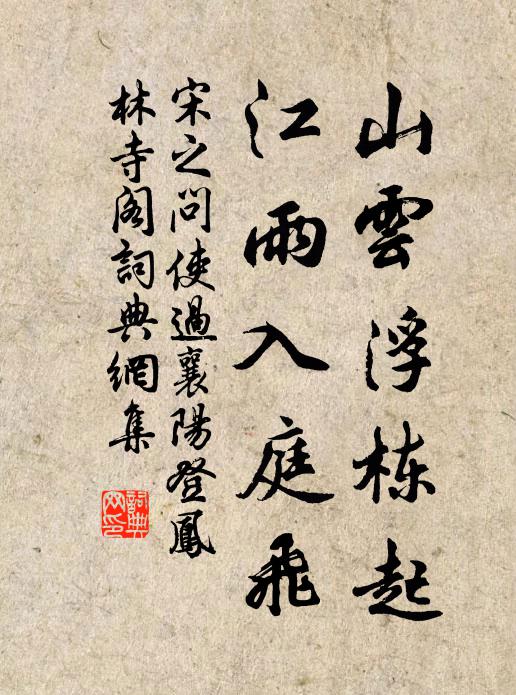 山雲浮栋起
江雨入庭飛
宋之问使過襄陽登鳳
林寺阁詞典網集
詞典
网印